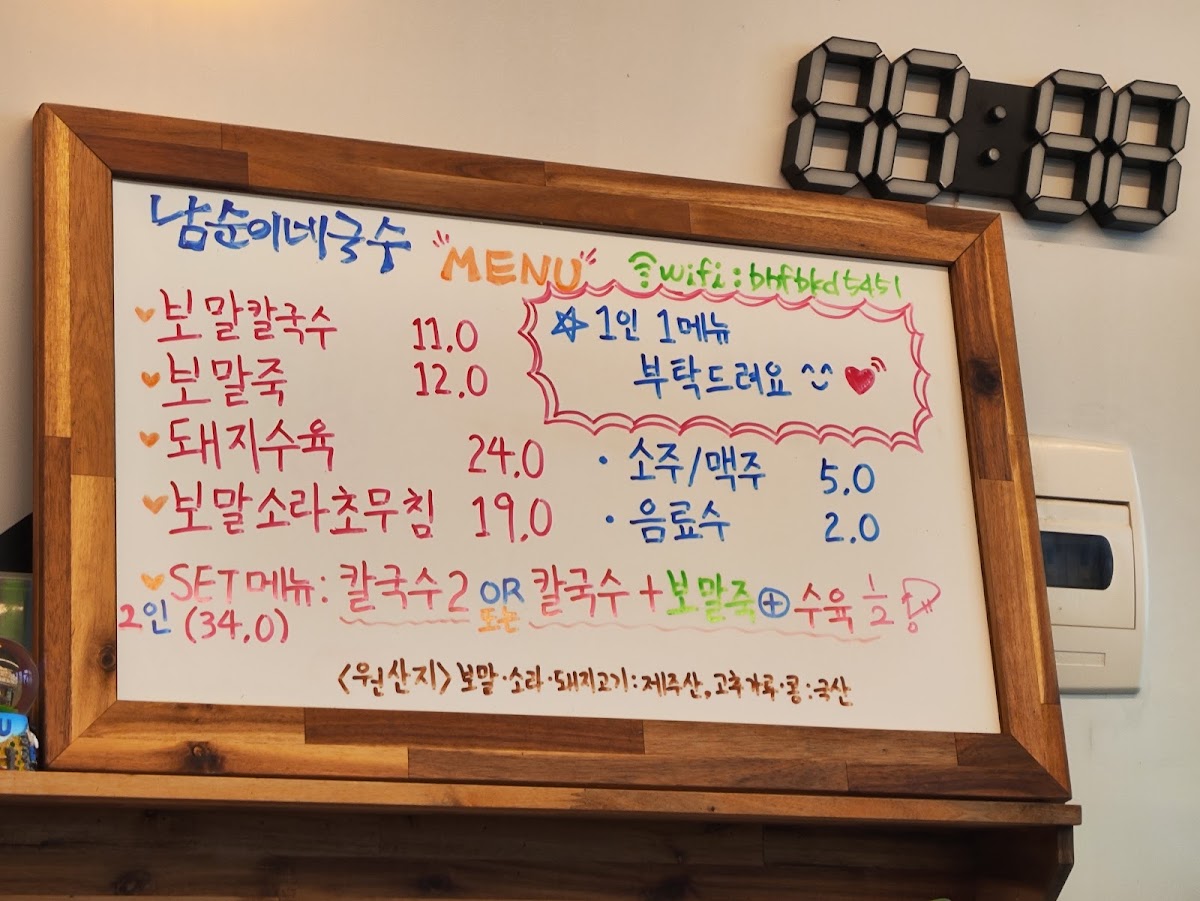 남순이네국수 "MENU" wifi: bhfbkd5451
보말칼국수 11.0
보말죽 12.0
돼지수육 24.0
보말소라초무침 19.0
1인 1메뉴
부탁드려요 ^^
· 소주/맥주 5.0
· 음료수 2.0
SET메뉴: 칼국수2 OR 또는 칼국수+보말죽+수육 1/2
2인 (34.0)
<원산지> 보말·소라·돼지고기:제주산, 고추가루·콩:국산